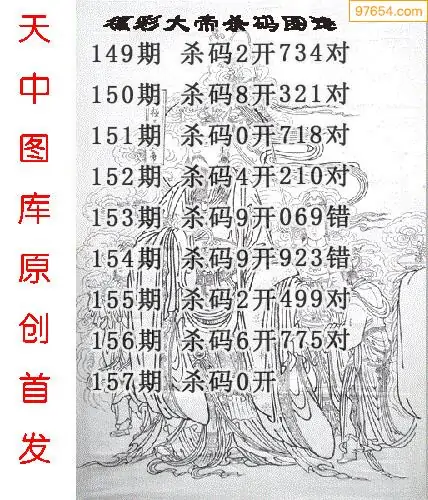 97654.com
福彩大帝杀码图迷
149期 杀码2开734对
150期 杀码8开321对
151期 杀码0开718对
152期 杀码4开210对
153期 杀码9开069错
154期 杀码9开923错
155期 杀码2开499对
156期 杀码6开775对
157期 杀码0开
天中图库原创首发